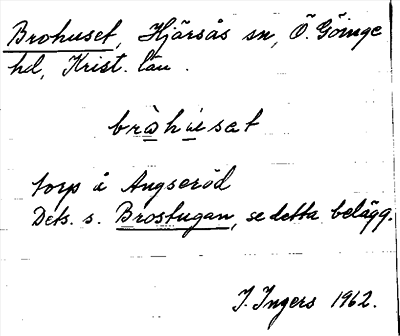 Brohuset, Hjärsås sn, Ö. Göinge
hd, Krist. län.
bròhu̇sət
torp å Angseröd
Dets. s. Brostugan, se detta belägg.
I. Ingers 1962.